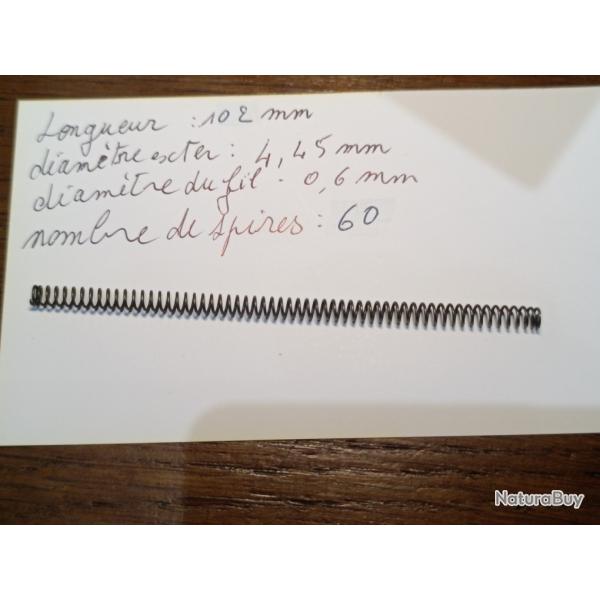 Longueur : 102 mm
diamètre exter : 4,45 mm
diamètre du fil : 0,6 mm
nombre de spires : 60
NaturaBuy